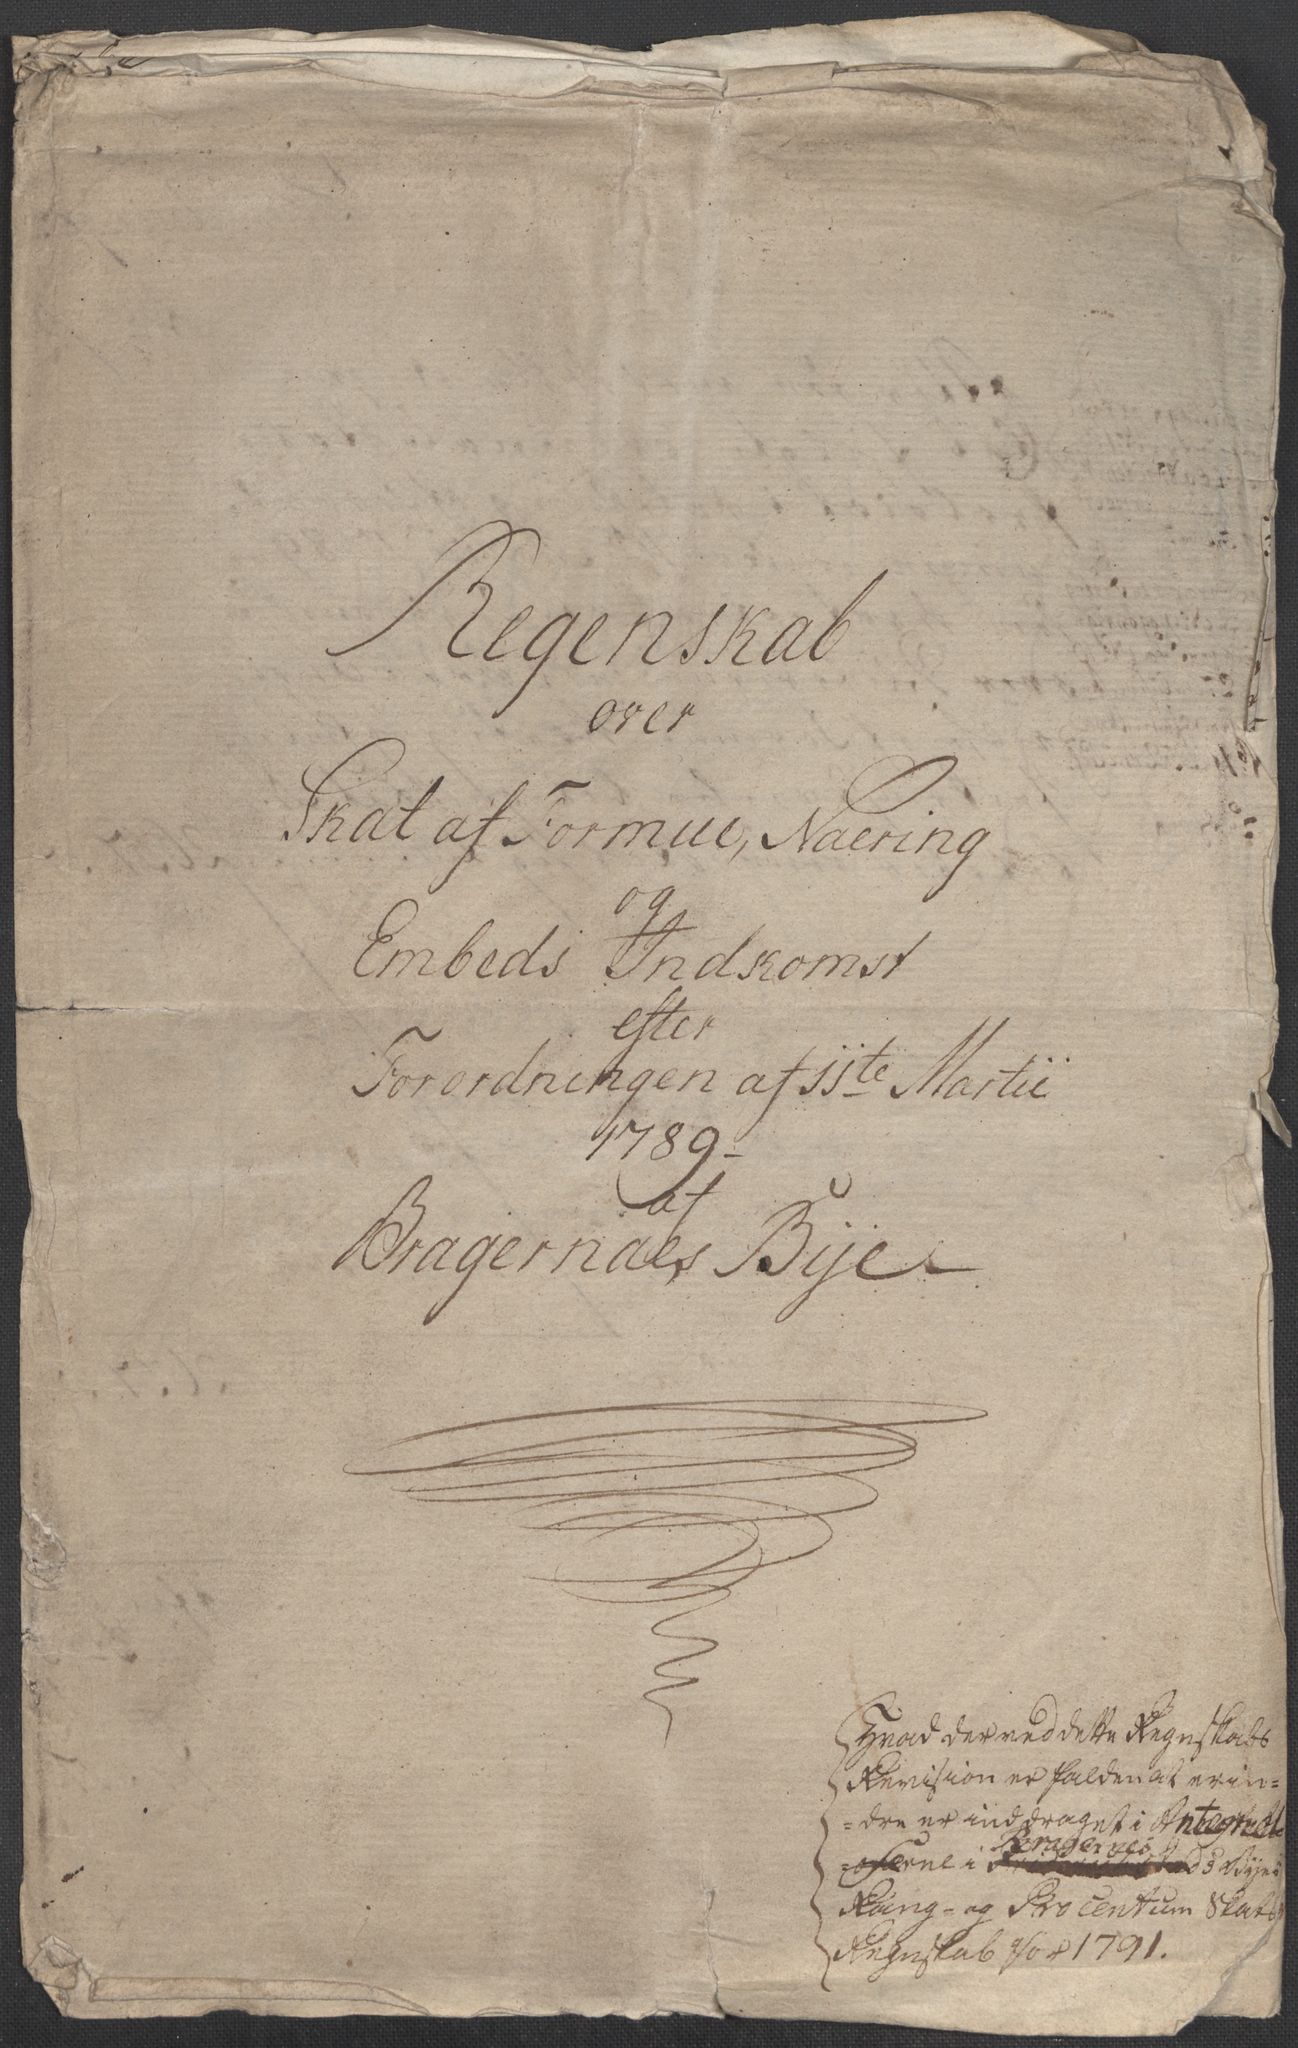 Regenskab
over
Skat af Formue, Naering
og
Embeds Indskomst
efter
Forordningen af 11te Martii
1789
af
Bragernaes Bije
Hvad der ved dette Regnskabs
Revision er falden at erin=
=dre er inddraget i
Bragernes
i Byes
Rang- og Procentum Skats
Regnskab for 1791.